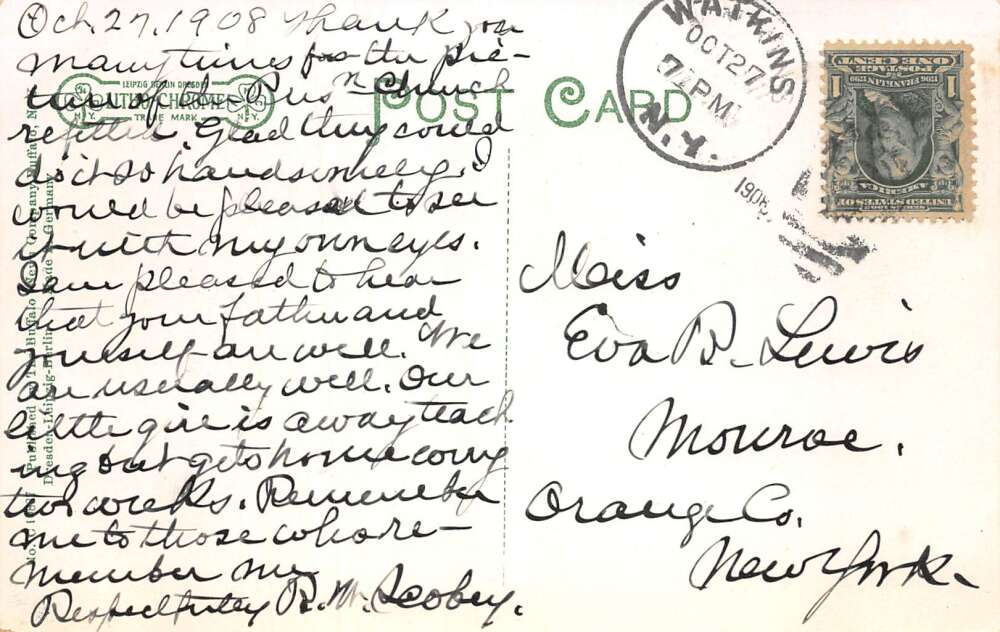 Oct. 27, 1908 Thank you
many times for the pic-
ture of the Presn Church
refitted. Glad they could
do it so handsomely. I
would be pleased to see
it with my own eyes.
I am pleased to hear
that your father and
yourself are well. We
are usually well. Our
little girl is away teach
ing but gets home every
two weeks. Remember
me to those who re-
member me
Respectfully R. M. Scobey.
LEIPZIG BERLIN DRESDEN
AUTO-CHROME
TRADE MARK
N.Y.
POST CARD
WATKINS
OCT 27
7 PM
N.Y.
1908
POSTAGE ONE CENT
1706 FRANKLIN 1790
1
1
SERIES 1902
UNITED STATES OF
AMERICA
Miss
Eva B. Lewis
Monroe.
Orange Co.
New York.
Published by The Buffalo News Company, Buffalo, N.
Dresden-Leipzig-Berlin Made in Germany